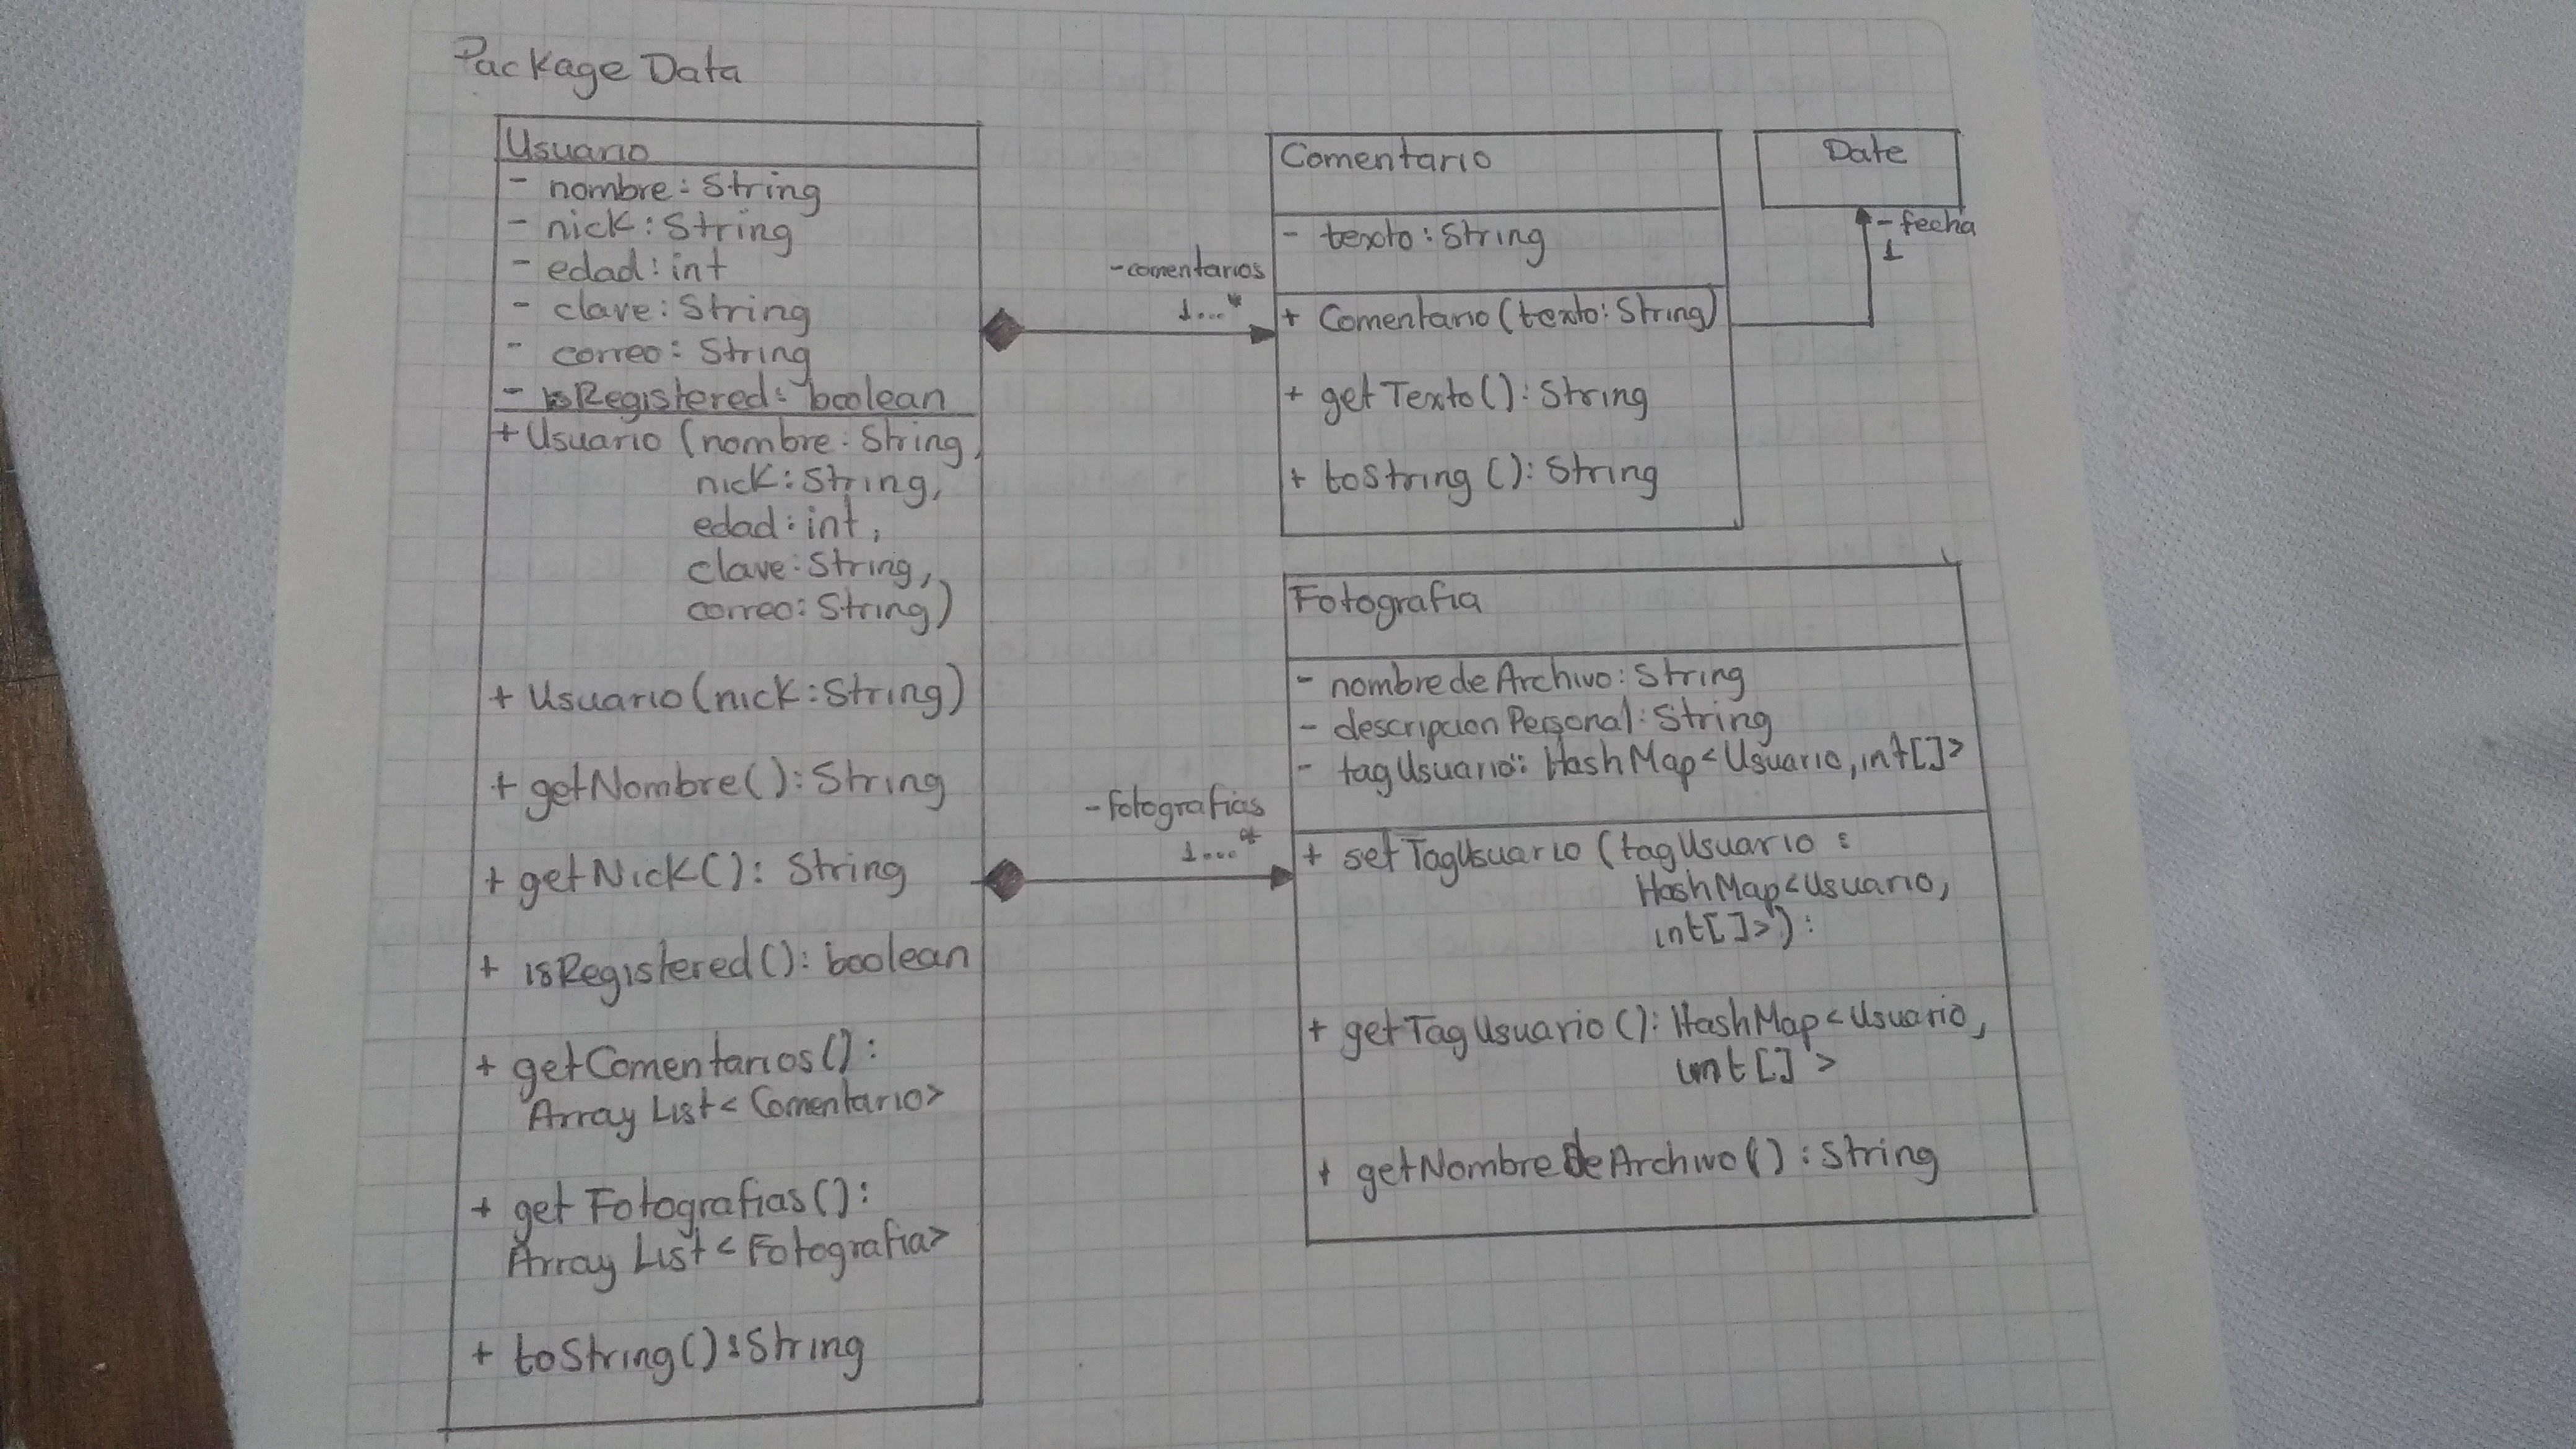 Package Data
Usuario
- nombre: String
- nick: String
- edad: int
- clave: String
- correo: String
- isRegistered: boolean
+ Usuario (nombre: String,
nick: String,
edad: int,
clave: String,
correo: String)
+ Usuario(nick: String)
+ getNombre(): String
+ getNick(): String
+ isRegistered(): boolean
+ getComentarios():
Array List< Comentario>
+ get Fotografias():
Array List < Fotografia>
+ toString(): String
- comentarios
1...*
- fotografias
1...*
Comentario
- texto: String
+ Comentario (texto: String)
+ getTexto(): String
+ toString (): String
Date
- fecha
1
Fotografia
- nombre de Archivo: String
- descripcion Personal: String
- tag Usuario: HashMap<Usuario, int[]>
+ set TagUsuario (tagUsuario :
HashMap<Usuario,
int[]>):
+ getTagUsuario (): HashMap<Usuario,
int []>
+ getNombreDeArchivo() : String